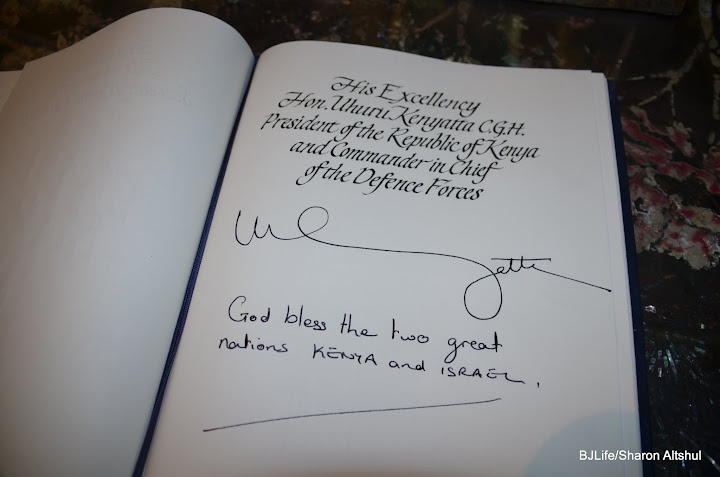 His Excellency
Hon. Uhuru Kenyatta C.G.H.
President of the Republic of Kenya
and Commander in Chief
of the Defence Forces
God bless the two great
nations KENYA and ISRAEL.
BJLife/Sharon Altshul